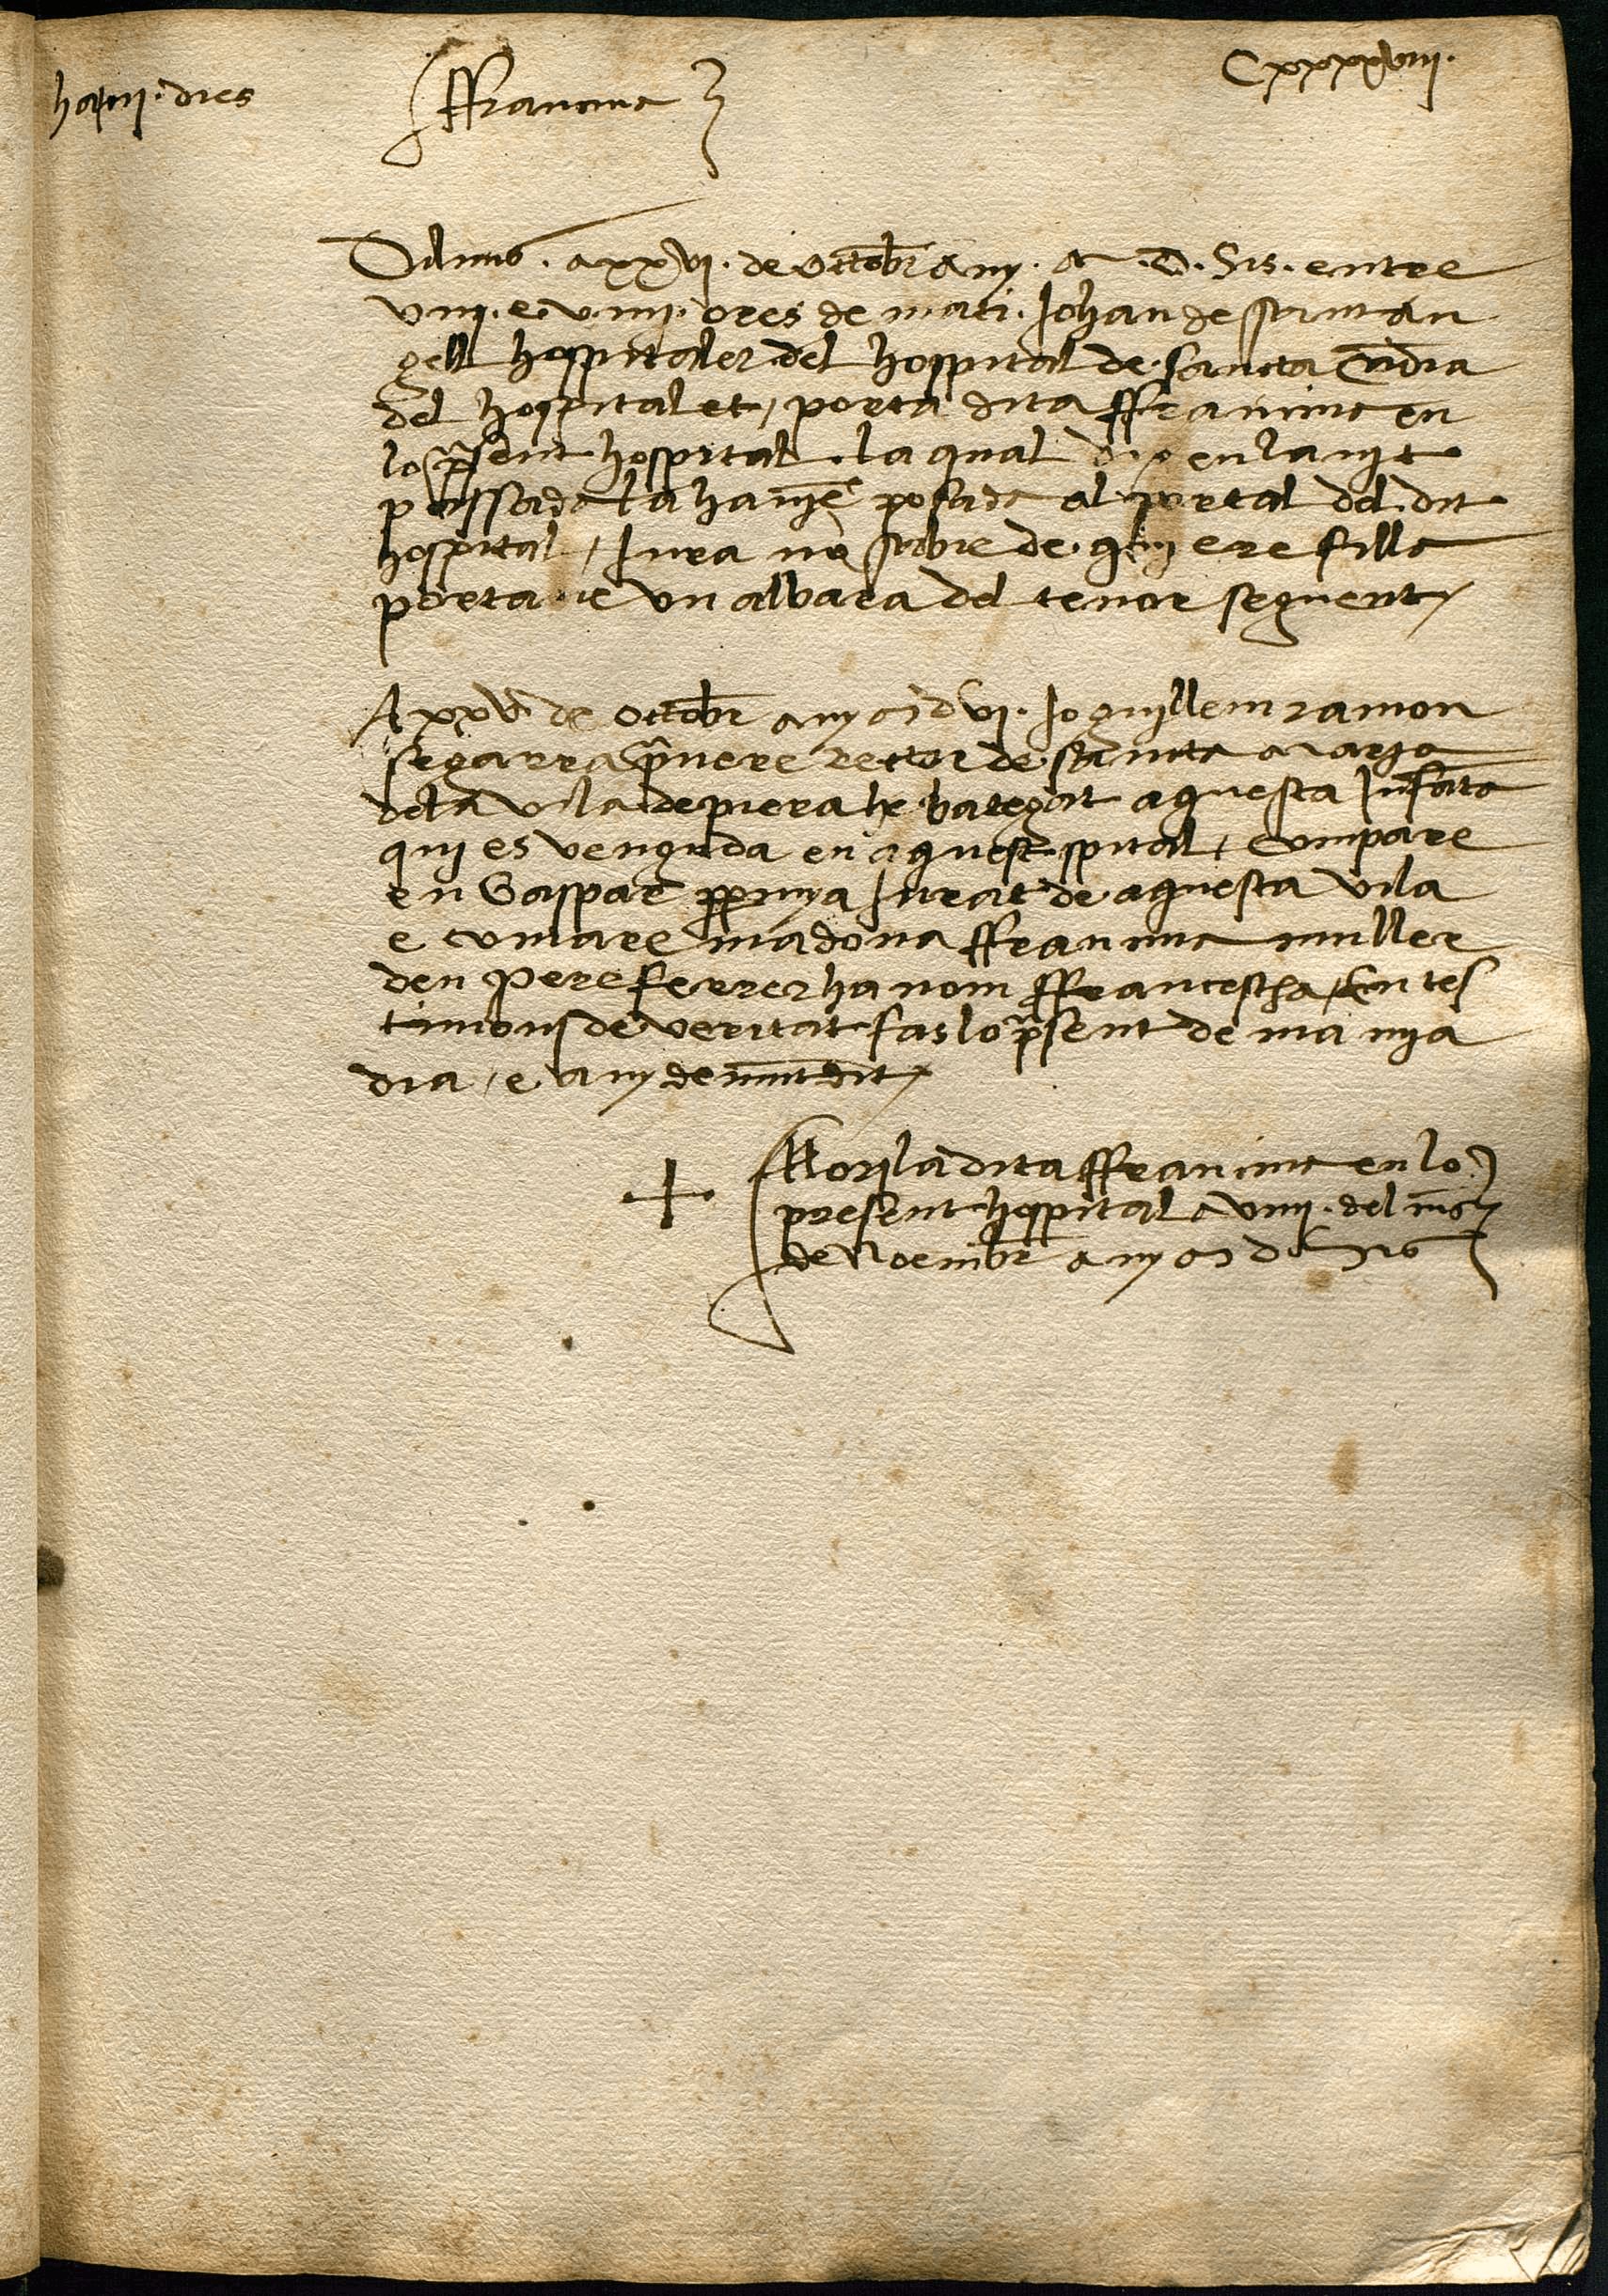 ha xiij. dies
ffrancina
Cxxxxviij.
Diluns. a xxvj. de octobr any. M. D. Sis. entre
viij. e viiij. ores de mati. Johan de
gell hospitaler del hospital de sancta
del hospitalet, porta dita ffrancina en
lo psent hospital. la qual dix en la nit
passada la havien posada al portal del dit
hospital, Jura no sabie de quj ere filla
portave un albara del tenor seguent,
A xxv de octobr any M d vj. Jo guillem ramon
segarra pvere rector de sancta maria
dela vila de piera he bategat aquesta Infata
quj es venguda en aquest spital, compare
en Gaspar Jurat de aquesta vila
e comare madona ffrancina muller
den Pere ferrer ha nom ffrancescha, En tes
timonj de veritat fas lo psent de ma mja
dia, e any demunt dit,
Morj la dita ffrancina en lo
present hospital a viiij. del mes
de Noembr any M d sis